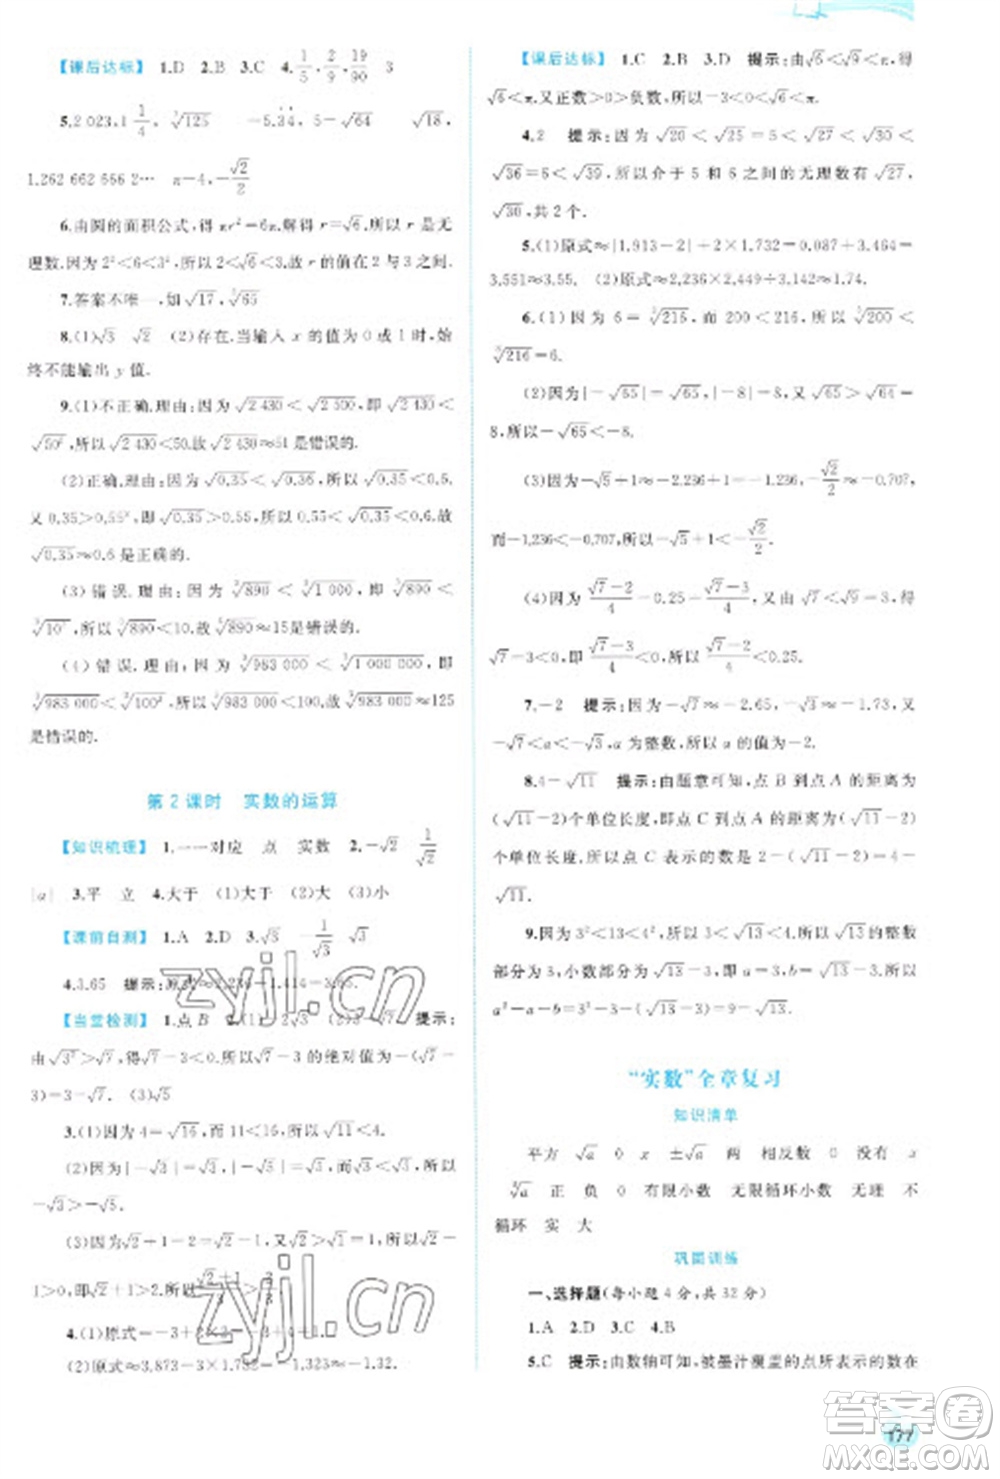 【课后达标】 1.D 2.B 3.C 4.1/5,2/9,19/90 3
5.2 023,1 1/4,∛125 -5.3̇4̇,5-√64 √18,
1.262 662 666 2… π-4,-√2/2
6.由圆的面积公式,得 πr²=6π,解得 r=√6,所以 r 是无
理数.因为 2²<6<3²,所以 2<√6<3,故 r 的值在 2 与 3 之间.
7.答案不唯一,如 √17,∛65
8.(1)√3 √2 (2)存在.当输入 x 的值为 0 或 1 时,始
终不能输出 y 值.
9.(1)不正确.理由:因为 √2 430<√2 500,即 √2 430<
√50²,所以 √2 430<50.故 √2 430≈51 是错误的.
(2)正确.理由:因为 √0.35<√0.36,所以 √0.35<0.6.
又 0.35>0.55²,即 √0.35>0.55,所以 0.55<√0.35<0.6.故
√0.35≈0.6 是正确的.
(3)错误.理由:因为 ∛890<∛1 000,即 ∛890<
∛10³,所以 ∛890<10.故 ∛890≈ 是错误的.
(4)错误.理由:因为 ∛983 000<∛1 000 000,即
∛983 000<∛100³,所以 ∛983 000<100.故 ∛983 000≈125
是错误的.
第 2 课时 实数的运算
【知识梳理】 1.一一对应 点 实数 2.-√2 1/√2
|a| 3.平 立 4.大于 (1)大于 (2)大 (3)小
【课前自测】 1.A 2.D 3.√3 -1/√3 √3
4.3.65 提示:原式≈2.236-1.414=3.65.
【当堂检测】 1.点 B 2√3 (2)3-√7 提示:
由 √3²>√7,得 √7-3<0.所以 √7-3 的绝对值为-(√7-
3)=3-√7. (3)√5
3.(1)因为 4=√16,而 11<16,所以 √11<4.
(2)因为|-√3|=√3,|-√5|=√5,又 √3<√5,所以
-√3>-√5.
(3)因为 √2+1-3/2=,又 √2>1,所以 √2+
1>0,即 √2+1>,所以
4.(1)原式=-3+2
(2)原式≈3.873-3×1.732=-1.323≈-1.32.
【课后达标】 1.C 2.B 3.D 提示:因为 √6<√9<π,所以
√6<π,又正数>0>负数,所以-3<0<√6<π.
4.2 提示:因为 √20<√25=5<√27<√30<
√36=6<√39,所以介于 5 和 6 之间的无理数有 √27,
√30,共 2 个.
5.(1)原式≈|1.913-2|+2×1.732=0.087+3.464=
3.551≈3.55. (2)原式≈0.236×2.449÷3.142≈1.74.
6.(1)因为 6=∛216,而 200<216,所以 ∛200<
∛216=6.
(2)因为|-√65|=√65,|-8|=8,又 √65>√64=
8,所以-√65<-8.
(3)因为-√5+1≈-2.236+1=-1.236,-√2/2≈-0.707,
而-1.236<-0.707,所以-√5+1<-√2/2.
(4)因为 (√7-2)/4-0.25=(√7-3)/4,又因为 √7<√9=3,得
√7-3<0,即 (√7-3)/4<0,所以 (√7-2)/4<0.25.
7.-2 提示:因为-√7≈-2.65,-√3≈-1.73,
-√7<a<-√3,a 为整数,所以 a 的值为-2.
8.4-√11 提示:由题意可知,点 B 到点 A 的距离为
(√11-2)个单位长度,即点 C 到点 A 的距离为(√11-2)
个单位长度,所以点 C 表示的数是 2-(√11-2)=4-
√11.
9.因为 3²<13<4²,所以 3<√13<4,所以 √13的整数
部分为 3,小数部分为 √13-3,即 a=3,b=√13-3,所以
a²-a-b=3²-3-(√13-3)=9-√13.
“实数”全章复习
知识清单
平方 √a 0 x ±√a 两 相反数 0 没有 x
∛a 正 负 0 有限小数 无限循环小数 无理 不
循环 实 大
巩固训练
一、选择题(每小题 4 分,共 32 分)
1.A 2.D 3.C 4.B
5.C 提示:由数轴可知,被墨汁覆盖的点所表示的数在
177
zyjl.cn
zyjl.cn
答案圈
MXQE.COM